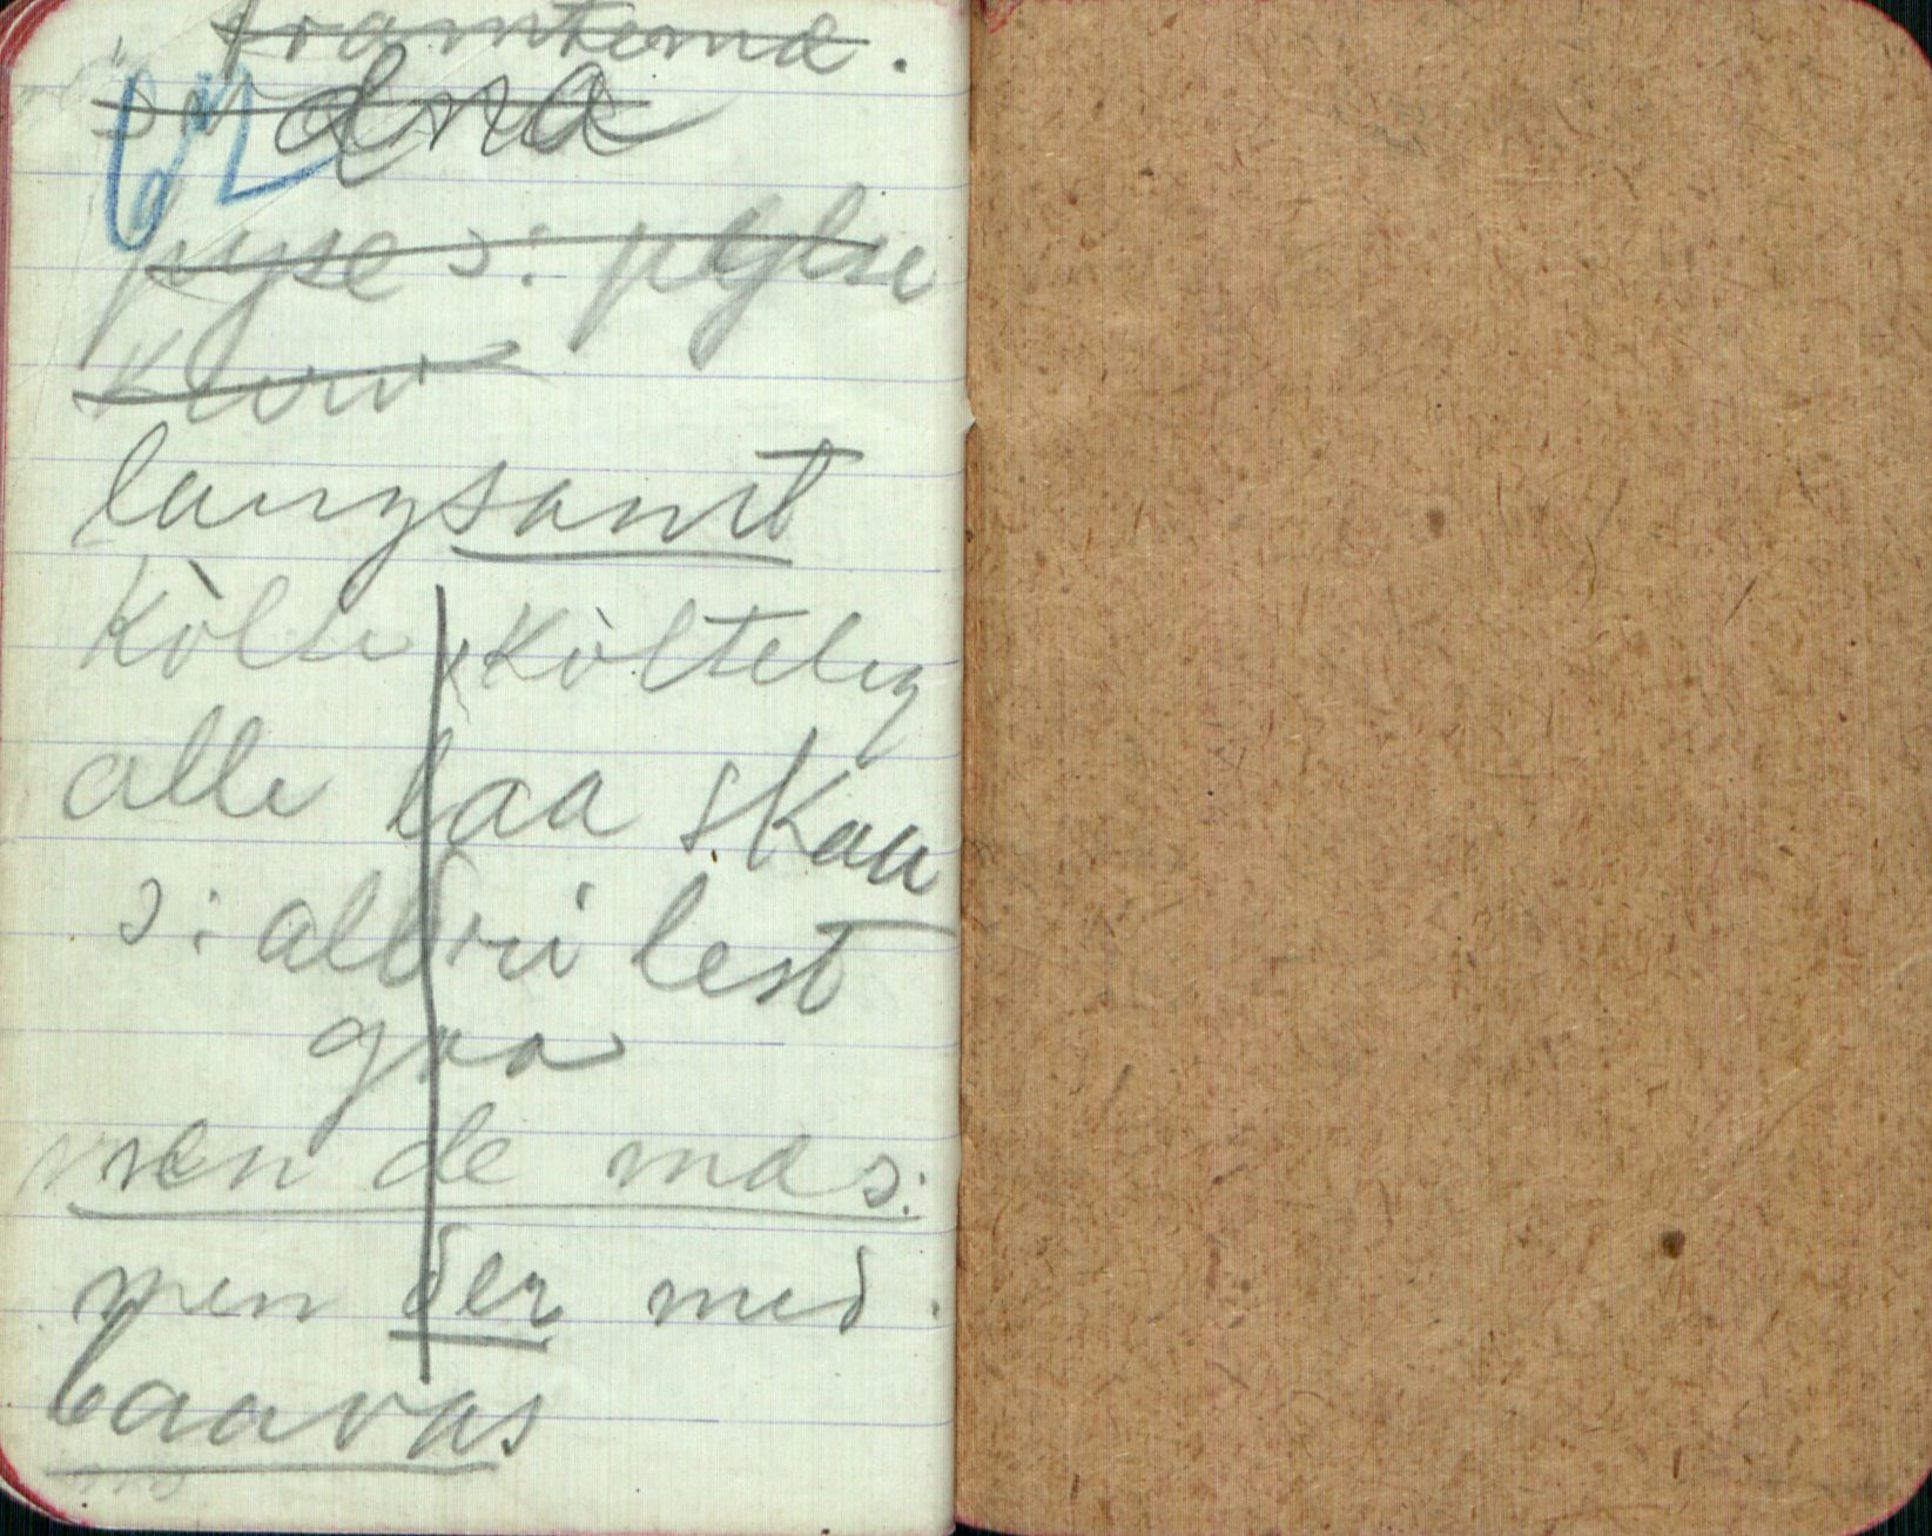 framtema.
edna
62
pyse ɔ: pölse
Kurv
langsamt
kòlle, Kòltelig
alle laa skaa
ɔ: alldri lest
gaa
men de mas:
men der med.
baavas